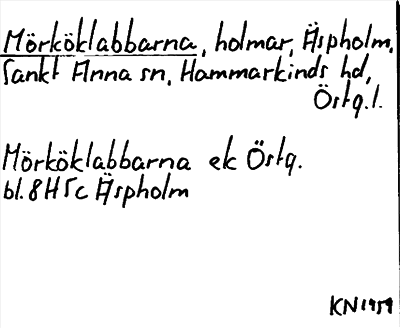 Mörköklabbarna, holmar, Äspholm,
Sankt Anna sn, Hammarkinds hd,
Östg.l.
Mörköklabbarna ek Östg.
bl. 8H 5c Äspholm
KN 1959